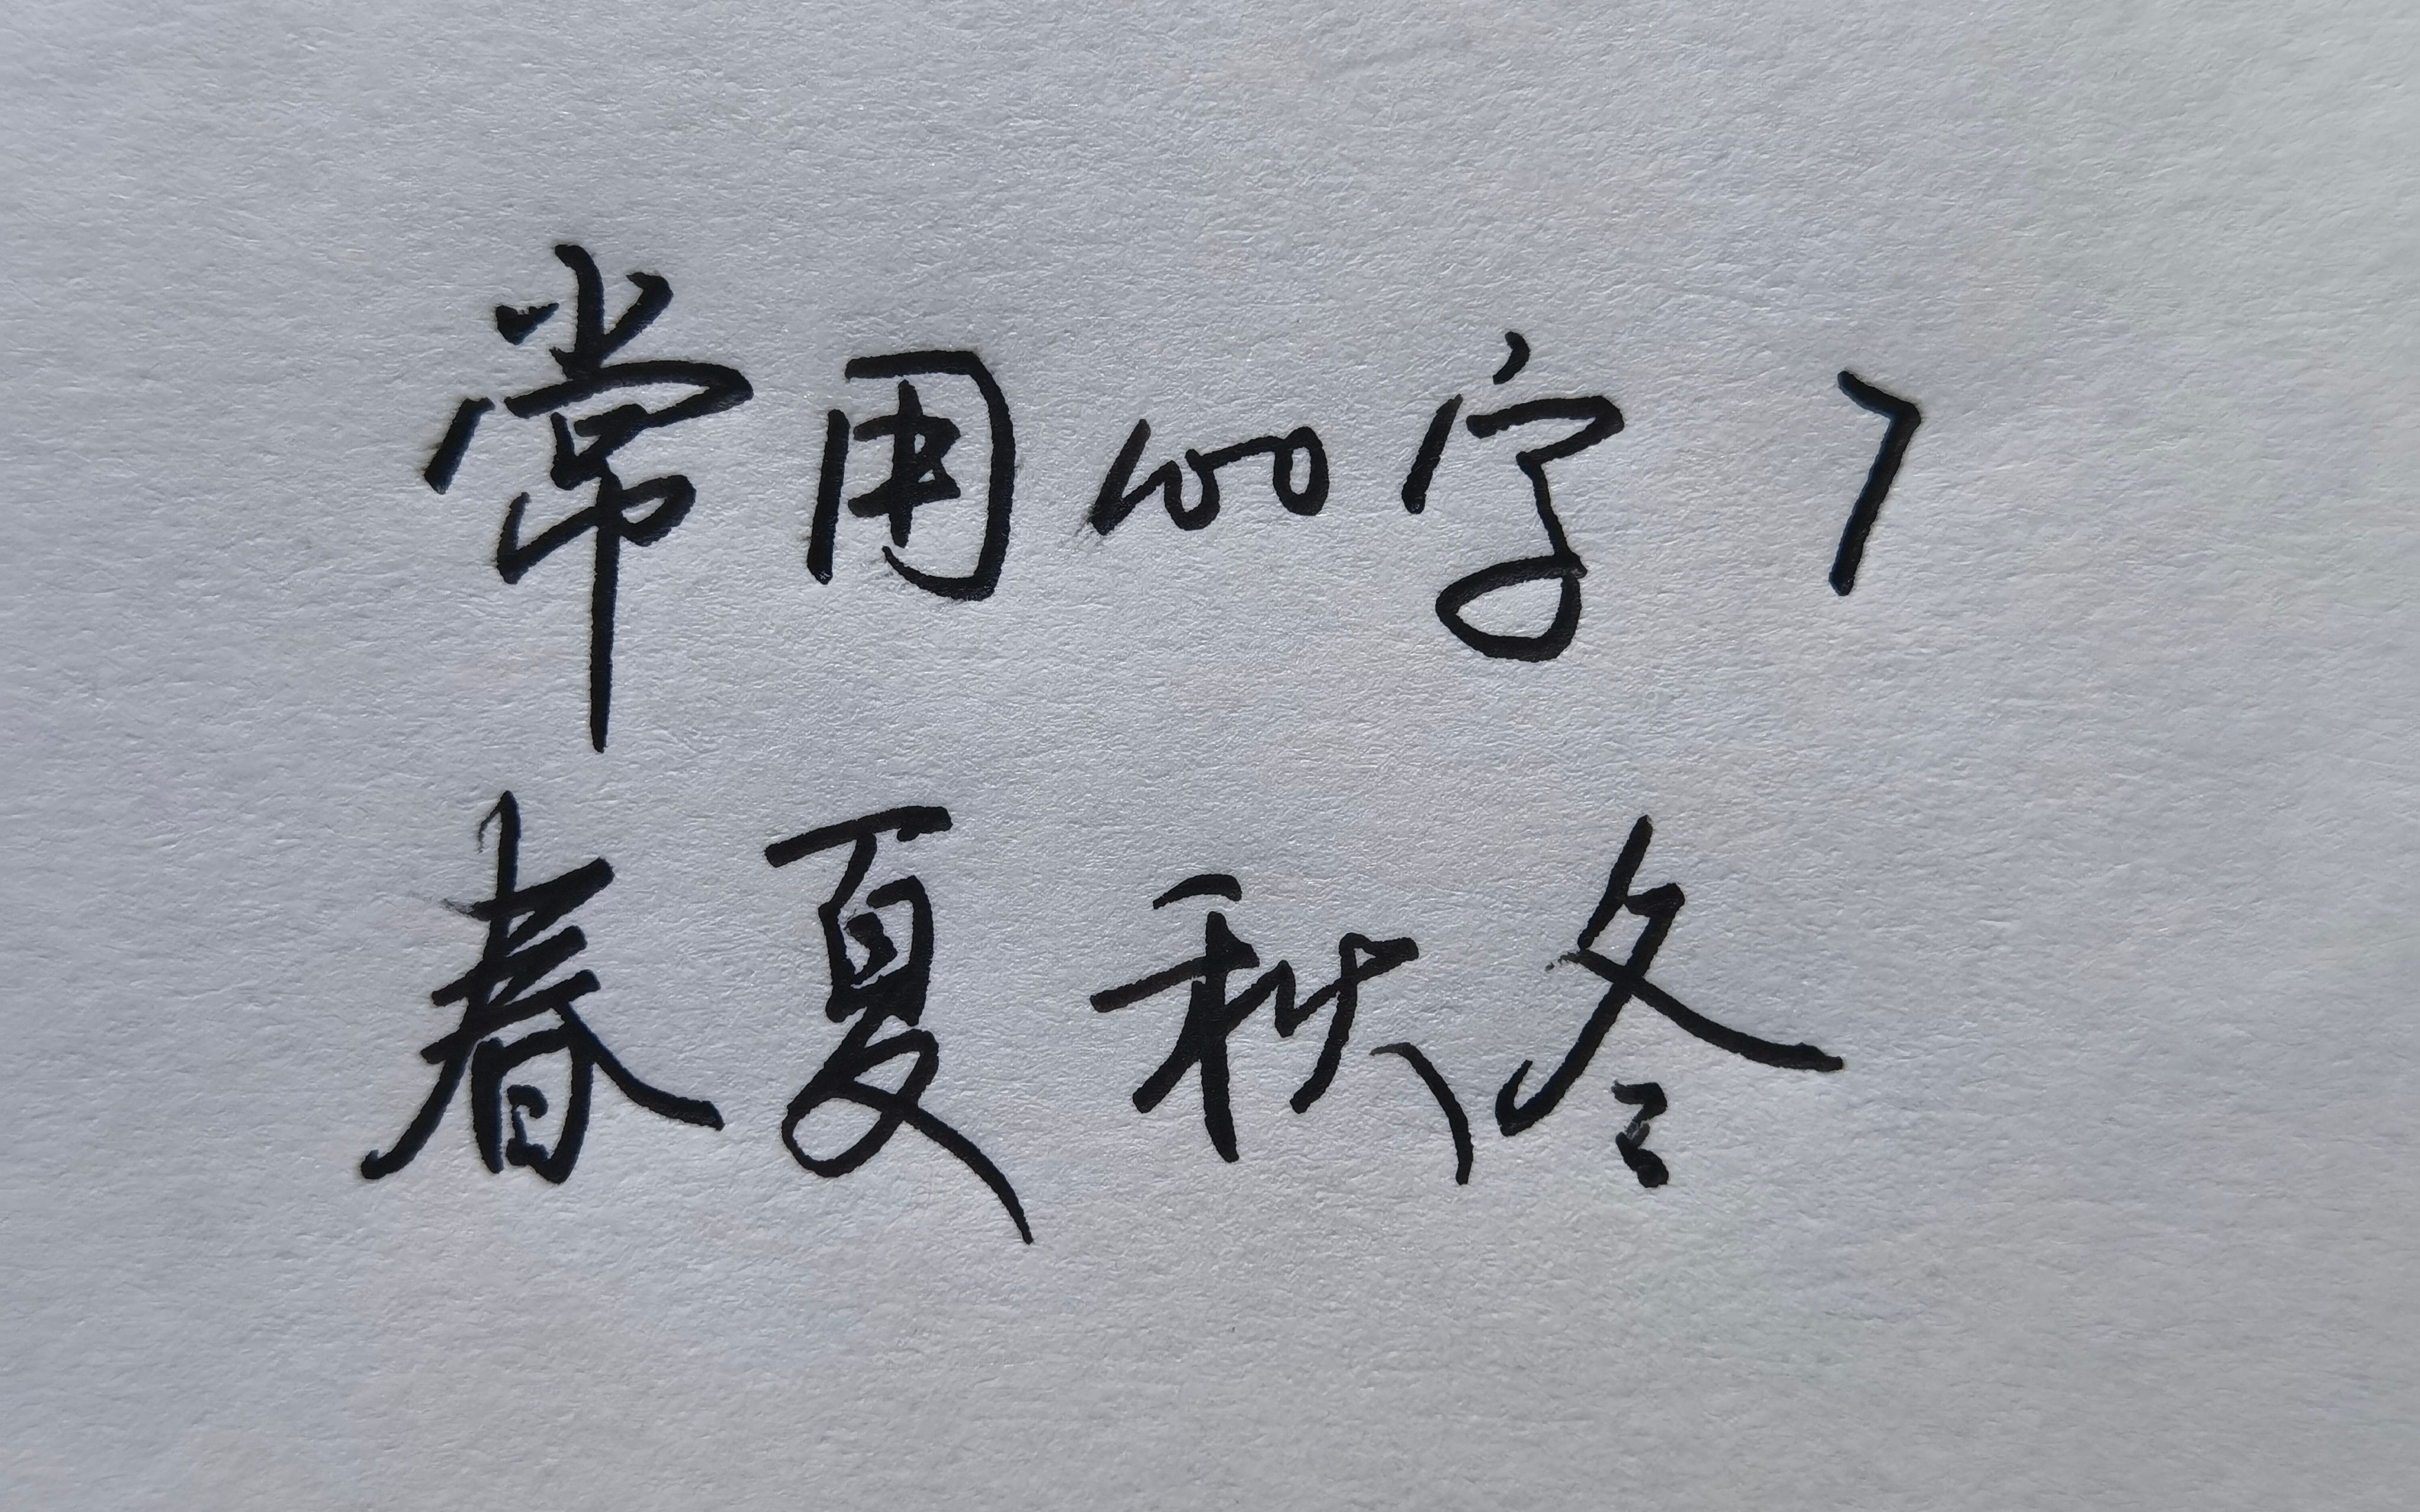 常用100字 7
春夏秋冬